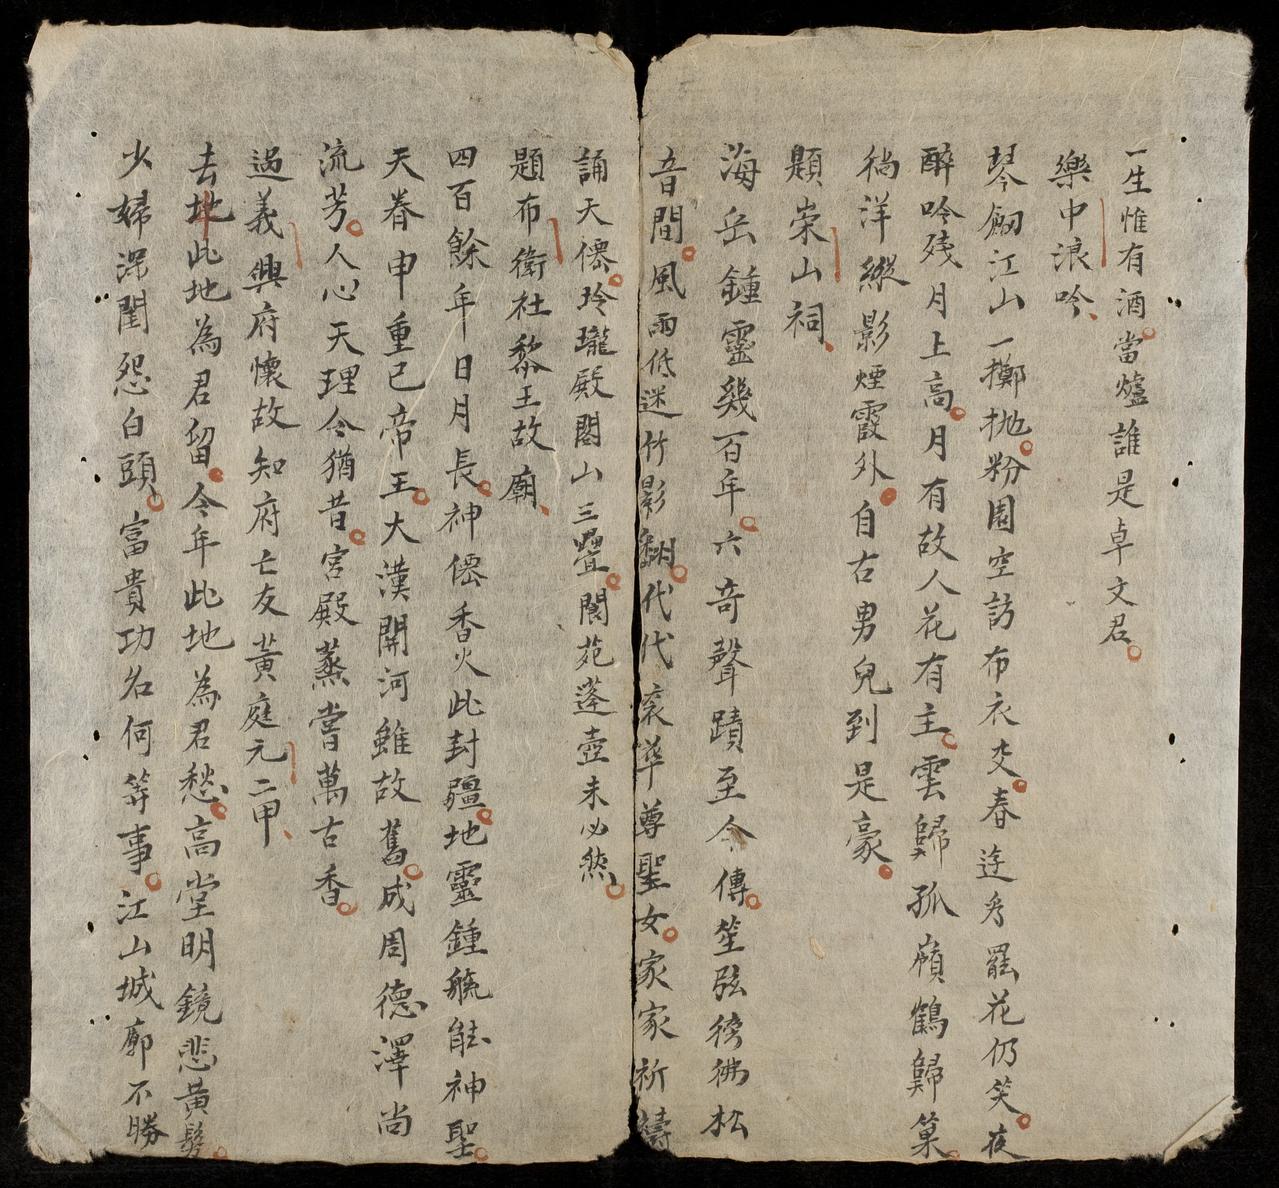 一生惟有酒當爐誰是卓文君
樂中浪吟
琴劍江山一擲拋粉園空訪布衣交春迓秀罷花仍笑夜
醉吟殘月上高月有故人花有主雲歸孤嶺鶴歸巢
徜洋縱影煙霞外自古男兒到是豪
題崇山祠
海岳鍾靈幾百年六奇聲蹟至今傳笙弦徬彿松
音間風雨低迷竹影翻代代袞華尊聖女家家祈禱
誦天僊玲瓏殿閣山三疊閬苑蓬壺未必然
題布衛社黎王故廟
四百餘年日月長神僊香火此封疆地靈鍾毓能神聖
天眷申重已帝王大漢開河雖故舊成周德澤尚
流芳人心天理今猶昔宮殿蒸嘗萬古香
過義興府懷故知府亡友黃庭元二甲
去地此地為君留今年此地為君愁高堂明鏡悲黃髮
少婦深閨怨白頭富貴功名何等事江山城廓不勝